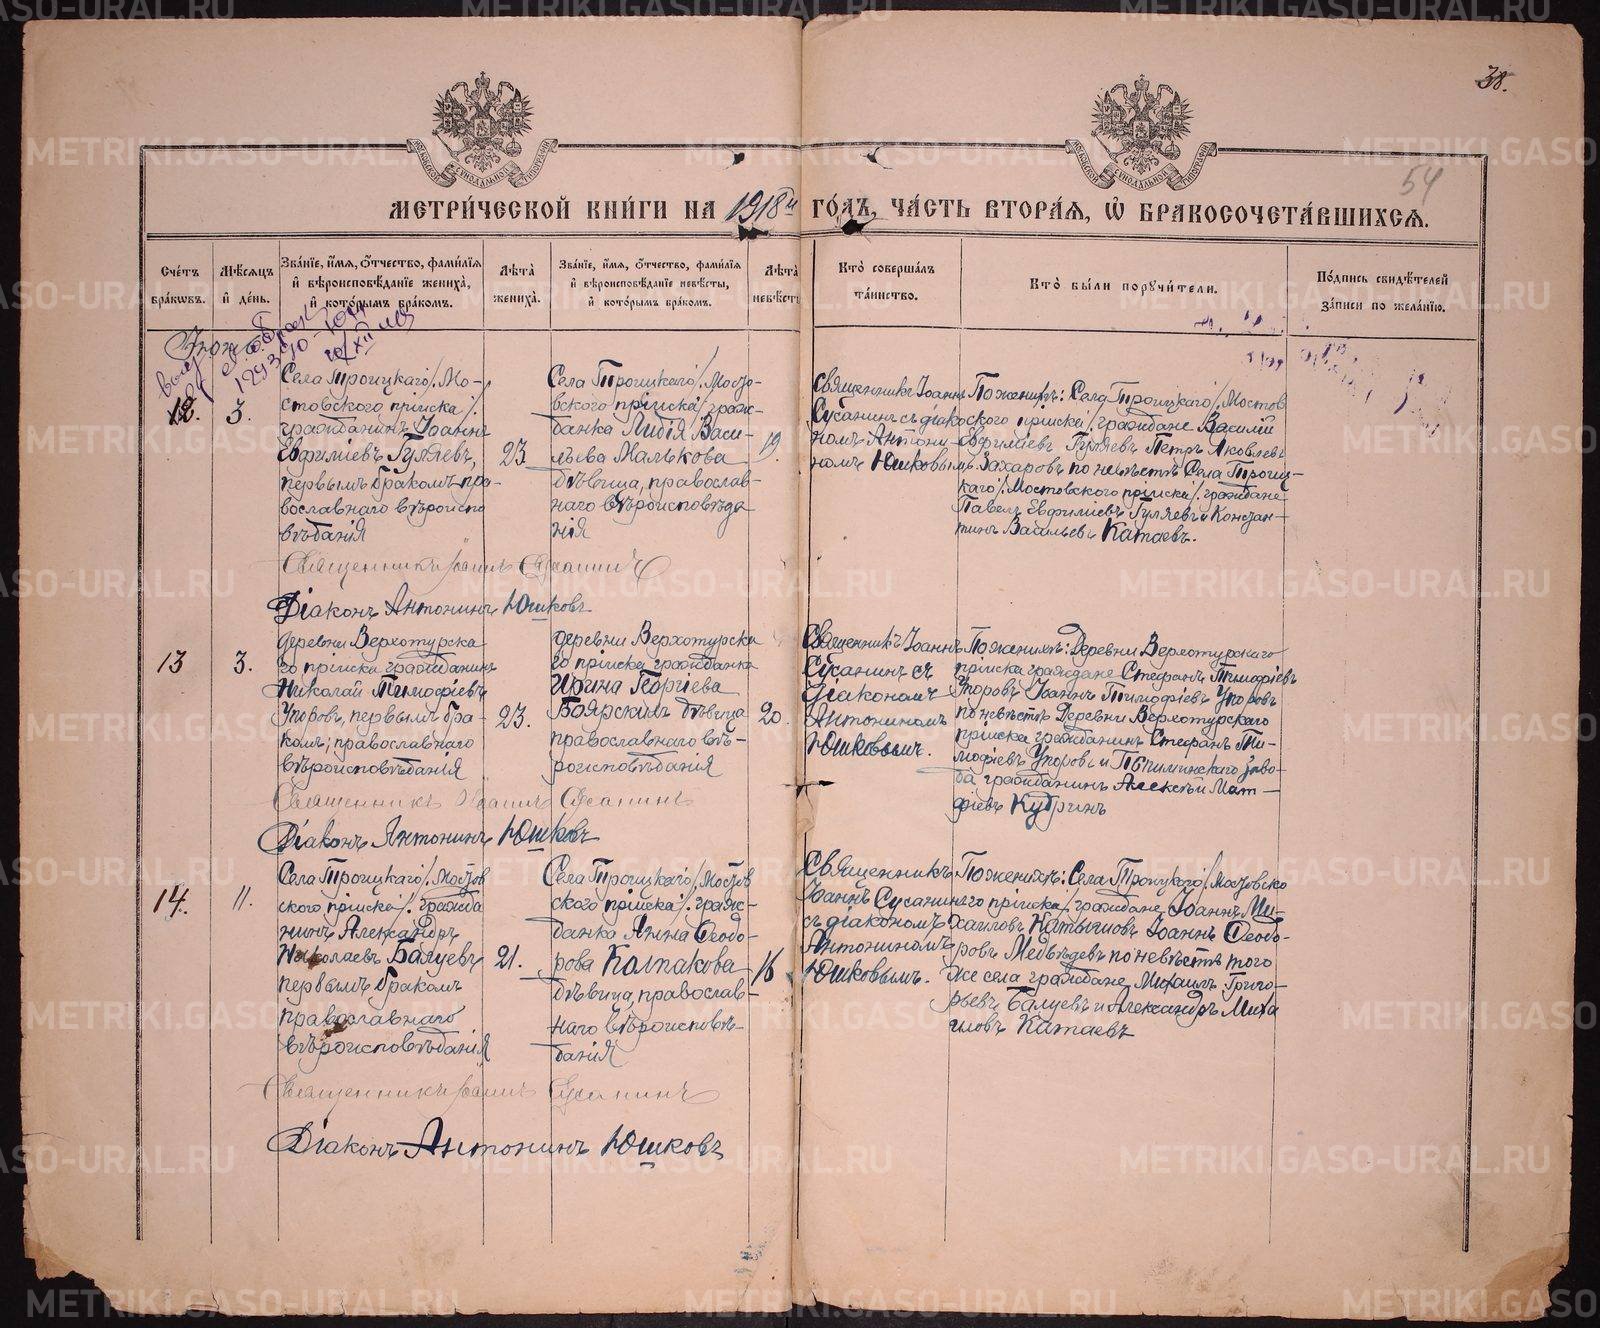 38.
54
МЕТРИ́ЧЕСКОЙ КНИ́ГИ НА 1918й ГО́ДЪ, ЧА́СТЬ ВТОРА́Я, Ѡ БРАКОСОЧЕТА́ВШИХСЯ.
Сче́тъ бра́кωвъ.
Мѣ́сяцъ и҆ де́нь.
Зва́нїе, и҆́мя, ѻ҆́тчество, фами́лїя и҆ вѣроисповѣ́данїе жениха̀, и҆ кото́рымъ бра́комъ.
Лѣта̀ жениха̀.
Зва́нїе, и҆́мя, ѻ҆́тчество, фами́лїя и҆ вѣроисповѣ́данїе невѣ́сты, и҆ кото́рымъ бра́комъ.
Лѣта̀ невѣ́сты
Кто̀ соверша́лъ та́инство.
Кто̀ бы́ли порꙋчи́тели.
По́дпись свидѣ́телей за́писи по жела́нїю.
12.
3.
Села Троицкаго /. Мо-
стовского пріиска /.
гражданинъ Іоаннъ
Евфиміевъ Гуляевъ,
первымъ бракомъ пра-
вославнаго вѣроиспо
вѣданія
23
Села Троицкаго /. Мосто-
вского пріиска / граж-
данка Лидія Васи-
льева Малькова
дѣвица, православ-
наго вѣроисповѣда
нія
19.
Священникъ Іоаннъ
Сусанинъ съ діако-
номъ Антони-
номъ Юшковымъ
По женихѣ: Села Троицкаго /. Мостов
ского пріиска /. граждане Василій
Евфиміевъ Гуляевъ Петръ Яковлевъ
Захаровъ по невѣстѣ Села Троиц-
каго /. Мостовского пріиска /. граждане
Павелъ Евфиміевъ Гуляевъ и Констан-
тинъ Васильевъ Катаевъ.
Священникъ Іоаннъ Сусанинъ
Діаконъ Антонинъ Юшковъ
13
3.
Деревни Верхотурска
го пріиска гражданинъ
Николай Тимофіевъ
Упоровъ, первымъ бра-
комъ; православнаго
вѣроисповѣданія
23.
Деревни Верхотурска
го пріиска гражданка
Ирина Георгіева
Боярскихъ дѣвица
православнаго вѣ-
роисповѣданія
20.
Священникъ Іоаннъ
Сусанинъ съ
Діакономъ
Антониномъ
Юшковымъ.
По женихѣ: Деревни Верхотурскаго
пріиска граждане Стефанъ Тимофіевъ
Упоровъ Іоаннъ Тимофіевъ Упоровъ
по невѣстѣ Деревни Верхотурскаго
пріиска гражданинъ Стефанъ Ти-
мофіевъ Упоровъ и Пышминскаго заво-
да гражданинъ Алексѣй Мат-
фіевъ Кудринъ
Священникъ Іоаннъ Сусанинъ
Діаконъ Антонинъ Юшковъ
14.
11.
Села Троицкаго /. Мостов
ского пріиска /. гражда
нинъ Александръ
Николаевъ Балуевъ
первымъ бракомъ
православнаго
вѣроисповѣданія
21.
Села Троицкаго /. Мостов
ского пріиска /. граж-
данка Анна Ѳеодо-
рова Колпакова
дѣвица, православ-
наго вѣроисповѣ-
данія
16
Священникъ
Іоаннъ Сусанинъ
съ діакономъ
Антониномъ
Юшковымъ.
По женихѣ: Села Троицкаго /. Мостовско
го пріиска /. граждане Іоаннъ Ми-
хаиловъ Катышовъ Іоаннъ Ѳеодо-
ровъ Медвѣдевъ по невѣстѣ того
же села граждане Михаилъ Григо-
рьевъ Балуевъ и Александръ Миха
иловъ Катаевъ
Священникъ Іоаннъ Сусанинъ
Діаконъ Антонинъ Юшковъ
METRIKI.GASO-URAL.RU